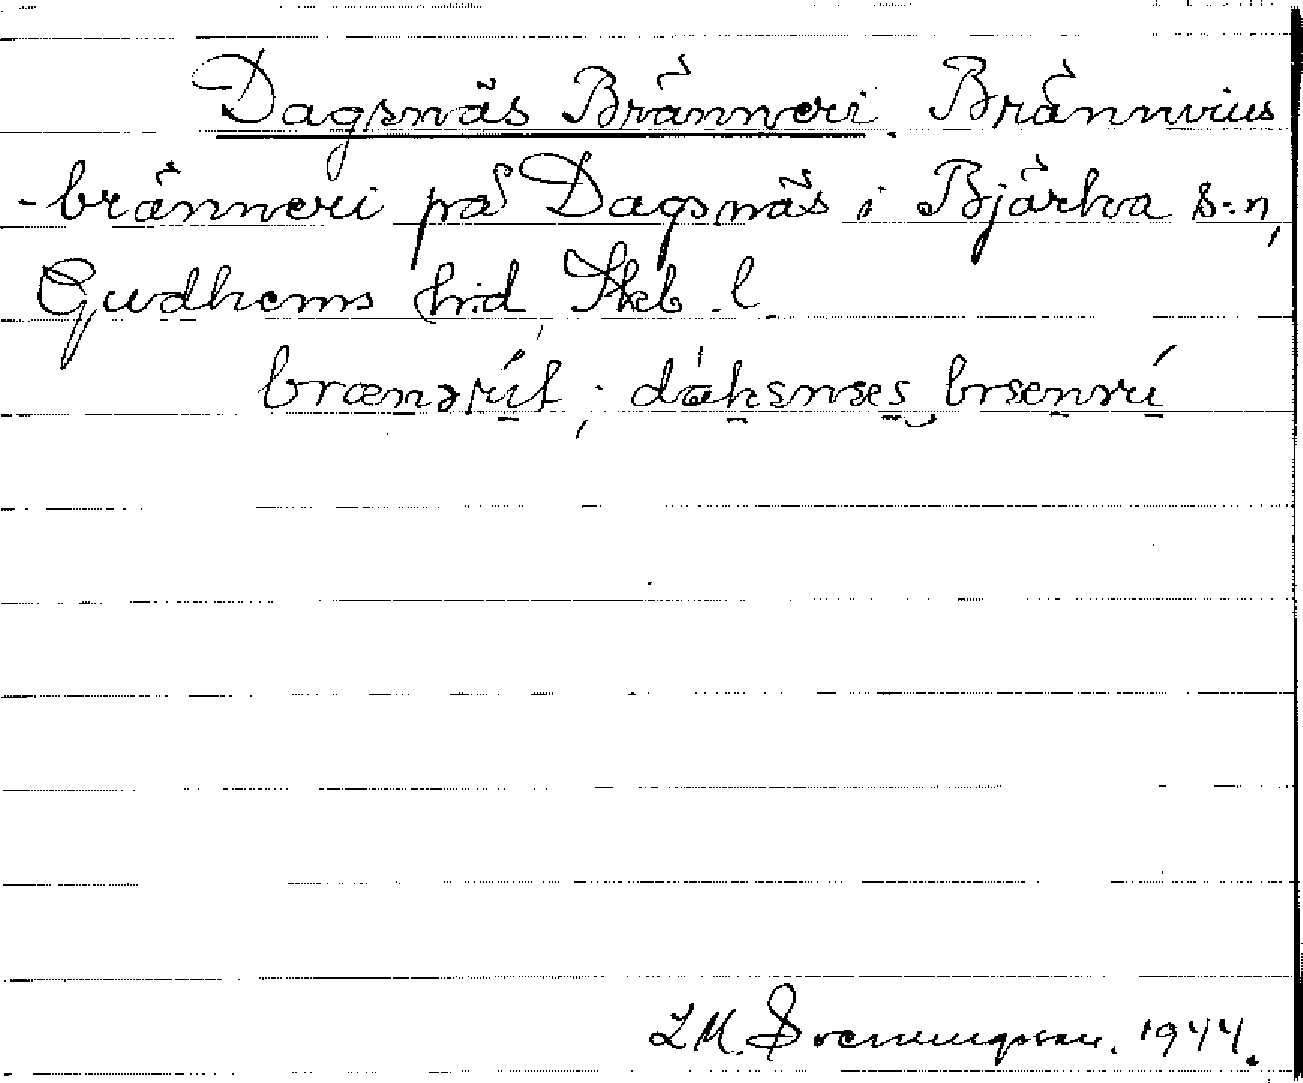 Dagsnäs Bränneri. Brännvins
-bränneri på Dagsnäs i Bjärka s:n,
Gudhems h:d, Skb. l.
brænərít; dáksnæs brænrí
L M. Svenungsson. 1944.